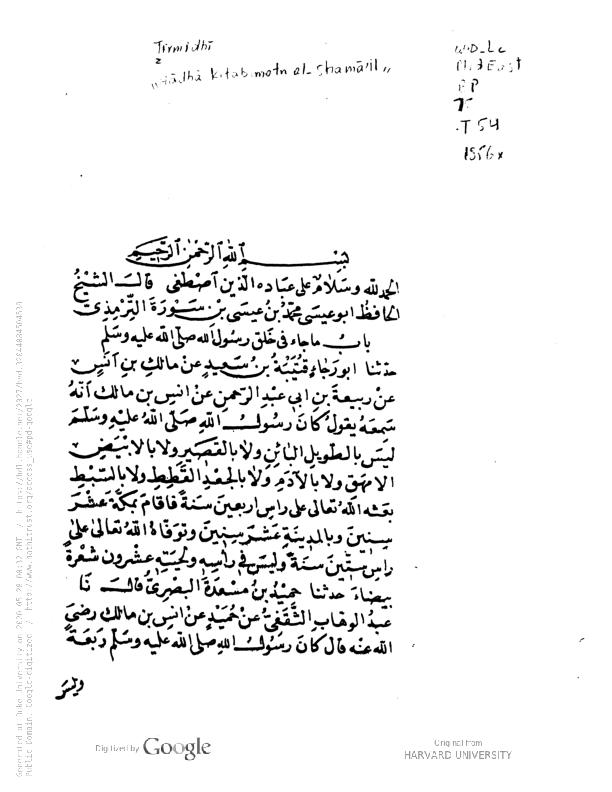 Tirmidhī
"Hādhā kitab motn al-Shamā'il"
Mid East
PP
.T54
1856x
بسم الله الرحمن الرحيم
الحمد لله وسلام على عباده الذين اصطفى قال الشيخ
الحافظ ابو عيسى محمد بن عيسى بن سورة الترمذي
باب ما جاء في خلق رسول الله صلى الله عليه وسلم
حدثنا ابو رجاء قتيبة بن سعيد عن مالك بن انس
عن ربيعة بن ابي عبد الرحمن عن انس بن مالك انه
سمعه يقول كان رسول الله صلى الله عليه وسلم
ليس بالطويل البائن ولا بالقصير ولا بالابيض
الامهق ولا بالآدم ولا بالجعد القطط ولا بالسبط
بعثه الله تعالى على راس اربعين سنة فاقام بمكة عشر
سنين وبالمدينة عشر سنين وتوفاه الله تعالى على
راس ستين سنة وليس في راسه ولحيته عشرون شعرة
بيضاء حدثنا حميد بن مسعدة البصري قال نا
عبد الوهاب الثقفي عن حميد عن انس بن مالك رضي
الله عنه قال كان رسول الله صلى الله عليه وسلم ربعة
وليس
Digitized by Google
Original from
HARVARD UNIVERSITY